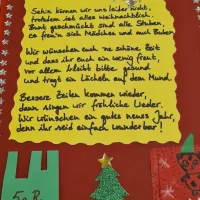 Seh'n können wir uns leider nicht,
trotzdem ist alles weihnachtlich.
Bunt geschmückt sind alle Stuben,
es freu'n sich Mädchen und auch Buben.
Wir wünschen euch 'ne schöne Zeit
und dass ihr euch ein wenig freut,
vor allem bleibt bitte gesund
und tragt ein Lächeln auf dem Mund.
Bessere Zeiten kommen wieder,
dann singen wir fröhliche Lieder.
Wir wünschen ein gutes neues Jahr,
denn ihr seid einfach wunderbar!